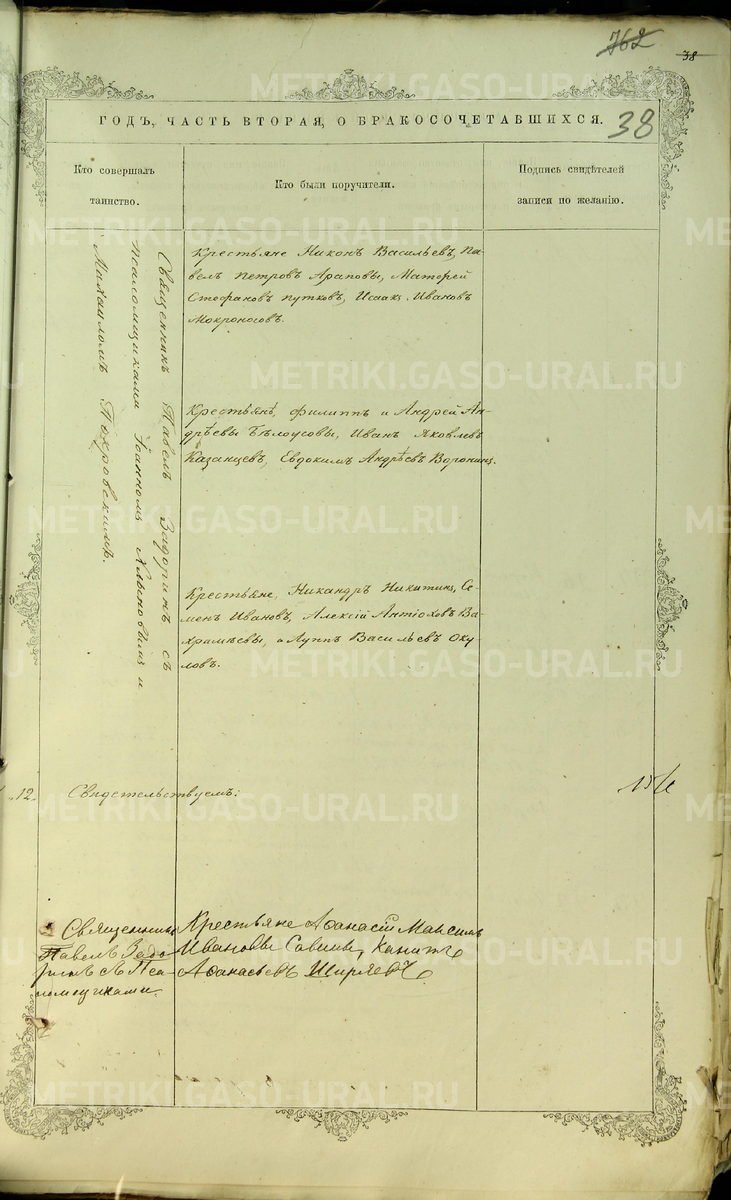 762
38
ГОДЪ, ЧАСТЬ ВТОРАЯ, О БРАКОСОЧЕТАВШИХСЯ.
38
Кто совершалъ
таинство.
Кто были поручители.
Подпись свидѣтелей
записи по желанію.
Священникъ Павелъ Задоринъ съ
псаломщиками Іоанномъ и
Михаиломъ Покровскимъ.
Крестьяне Никонъ Васильевъ, Па-
велъ Петровъ Араповы, Матфей
Стефановъ Путковъ, Исаакъ Ивановъ
Мокроносовъ.
Крестьянѣ, Филиппъ и Андрей Ан-
дрѣевы Бѣлоусовы, Иванъ Яковлевъ
Казанцевъ, Евдокимъ Андрѣевъ Воронинъ.
Крестьяне, Никандръ Никитинъ, Се-
менъ Ивановъ, Алексій Антіоховъ Ва-
храмѣевы, и Луппъ Васильевъ Оку-
ловъ.
12.
Свидетельствуемъ:
Священникъ
Павелъ Задо-
ринъ съ Пса-
ломщиками.
Крестьяне Афанасій Максимъ
Ивановы Савины,
Афанасьевъ Ширяевъ
METRIKI.GASO-URAL.RU